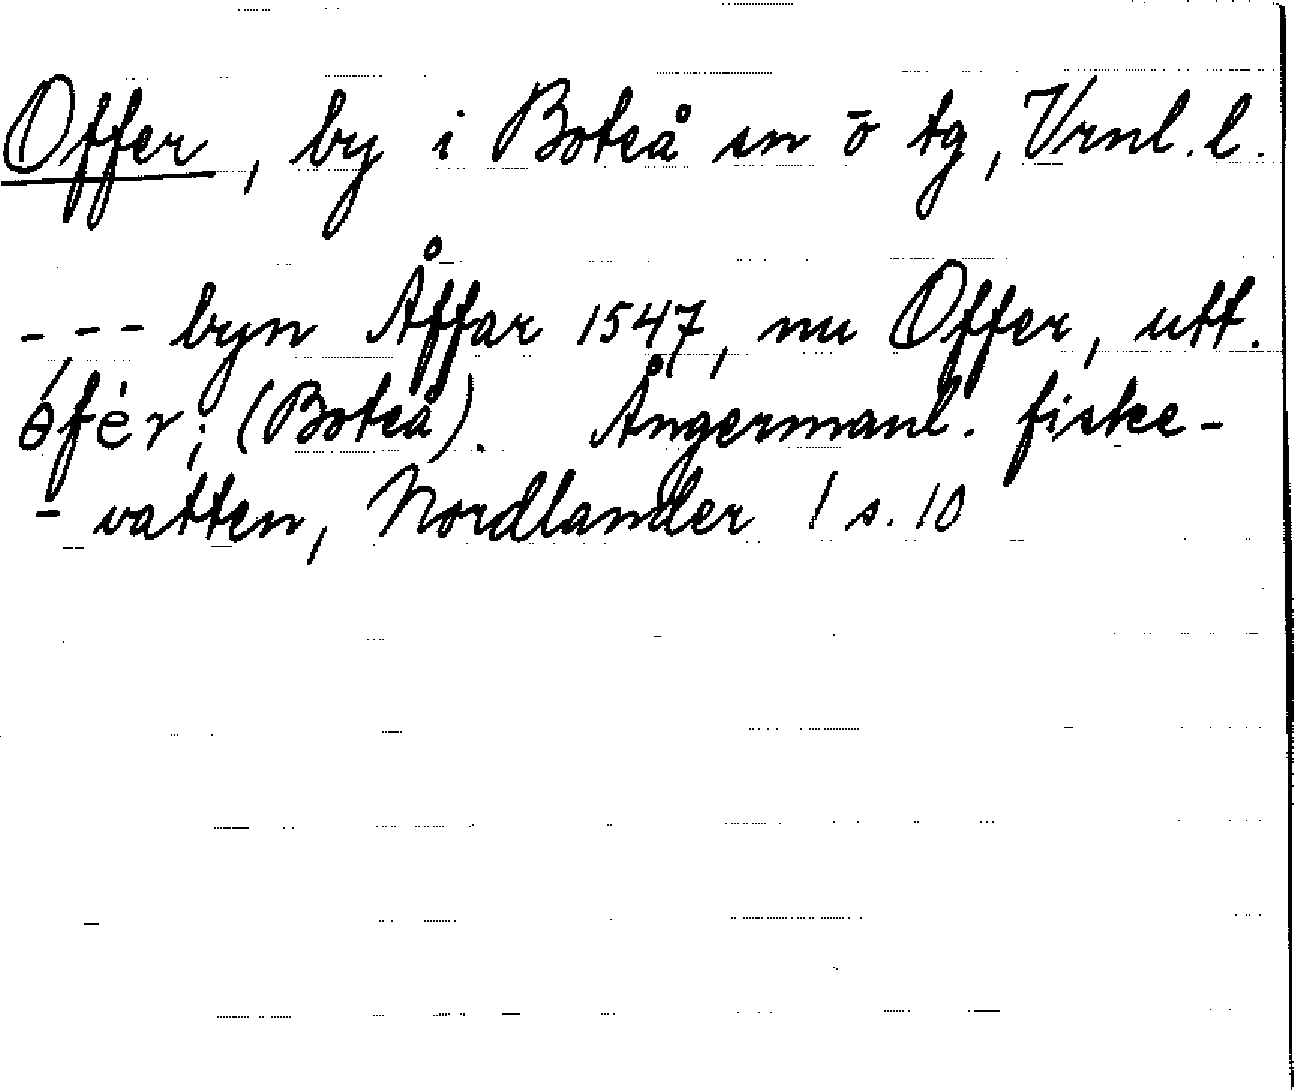 Offer, by i Boteå sn o tg, Vrnl. l.
- - - byn Åffar 1547, nu Offer, utt.
ɵ́fėr; (Boteå). Ångermanl. fiske-
- vatten, Nordlander 1 s. 10